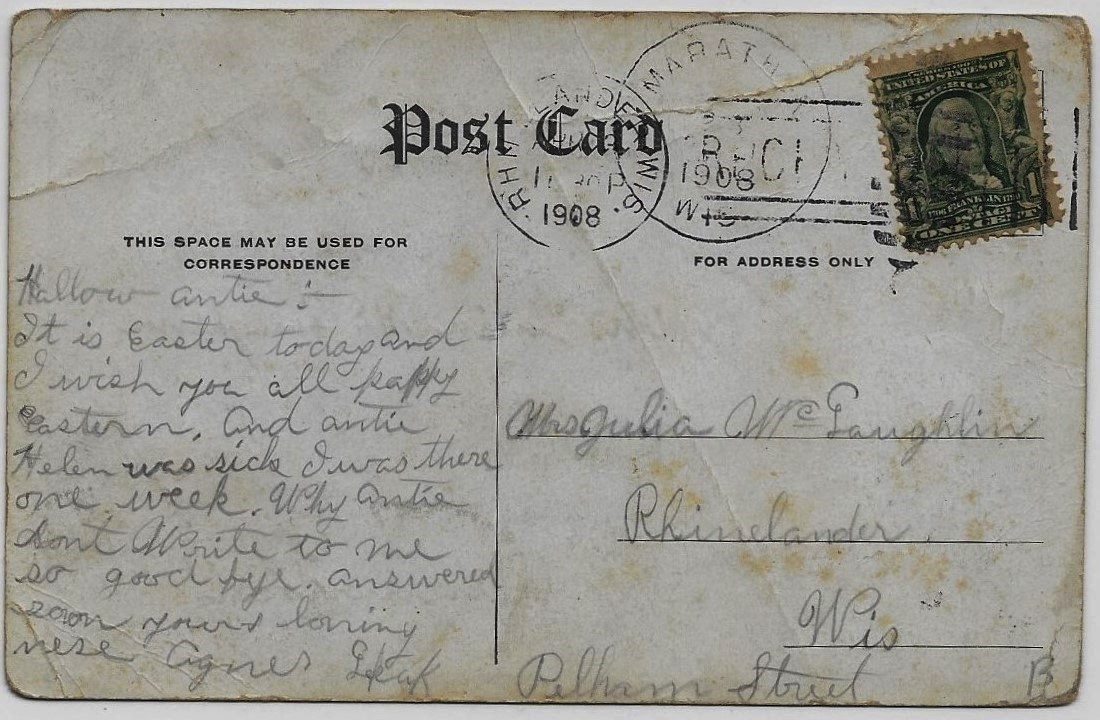 Post Card
MARATH
WIS
1908
RHI LANDE WIS.
1908
REC
SERIES 1902
UNITED STATES OF
AMERICA
1 1
FRANKLIN
ONE CENT
THIS SPACE MAY BE USED FOR
CORRESPONDENCE
FOR ADDRESS ONLY
Hallow antie :-
It is Easter today and
I wish you all happy
eastern. And antie
Helen was sick I was there
one week. Why antie
dont Write to me
so good bye. answered
soon yours loning
nese Agnes
Mrs Julia McLaughlin
Rhinelander.
Wis
Pelham Street
B